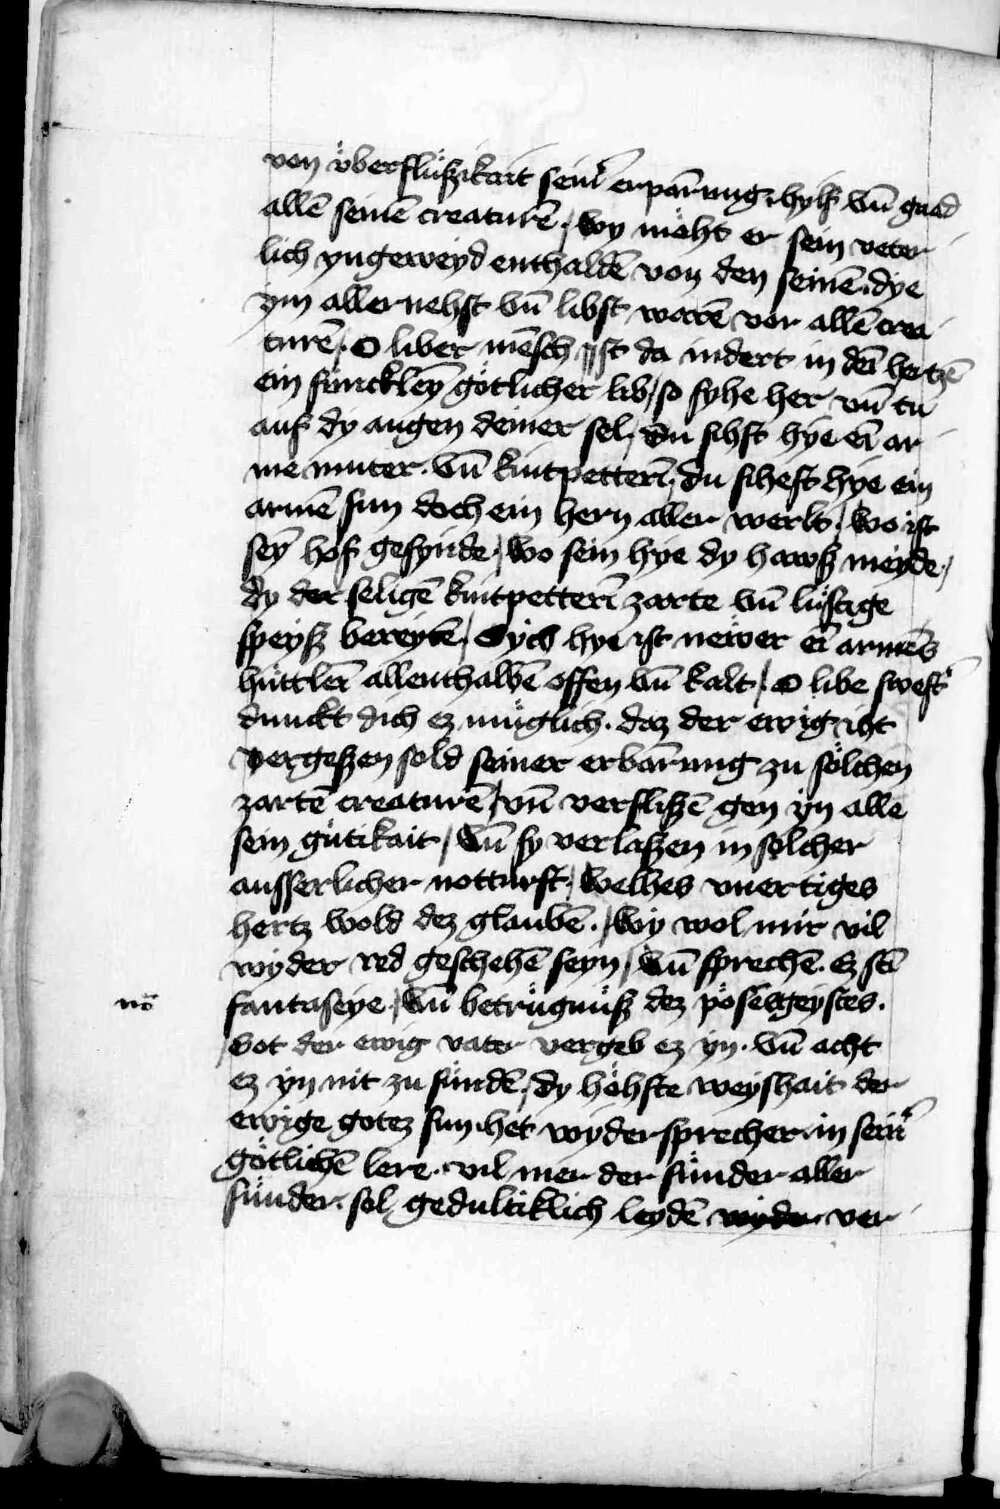 von v̈berflüßikait sein̄ erpārung hylf vn̄ gnad
allē seinē creaturē / Wy möht er sein veter
lich yngeweyd enthaldē von den seinē. dye
ym aller nehst vn̄ libst warē vor allē crea
turē / O liber mēsch / Ist da indert in dei̅ hertzē
ein füncklei̅ götlicher lib / so syhe her vn̄ tu
auf dy augen deiner sel / du sihst hye ei̅ ar
me muter. vn̄ kintpetteri̅ / du sihest hye ein
armē sun doch ein hern aller werlt / Wo ist
sey̅ hof gesynde / Wo sein hye dy hawß meyde /
dy der seligē kintpetteri̅ zarte vn̄ lüstige
speyß bereytē / Sych hye ist newer ei̅ armēs
hüttlei̅ allenthalbē offen vn̄ kalt / O libe swest̄
dunckt dich ez müglich. daz der ewig iht
vergeßen sold seiner erbārung zu sölchen
zartē creaturē / vn̄ verflißē gen yn alle
sein gütikait / Vn̄ sy verlaßen in solcher
ausserlicher notturft / Welhes vnertiges
hertz wold dez glaubē. / Wy wol mir vil
wyder red geschehē seyn / Vn̄ sprechē. Ez sei̅
nō
fantaseye / Vn̄ betrügnüß dez pösen geystes.
/ Got der ewig vater vergeb ez yn. Vn̄ acht
ez yn nit zu sündē / dy höhste weyshait der
ewige gotez sun. het wydersprecher in sein̄
götlichē lere. vil mer der sünder aller
sünder. sol gedultiklich leydē wyder ver